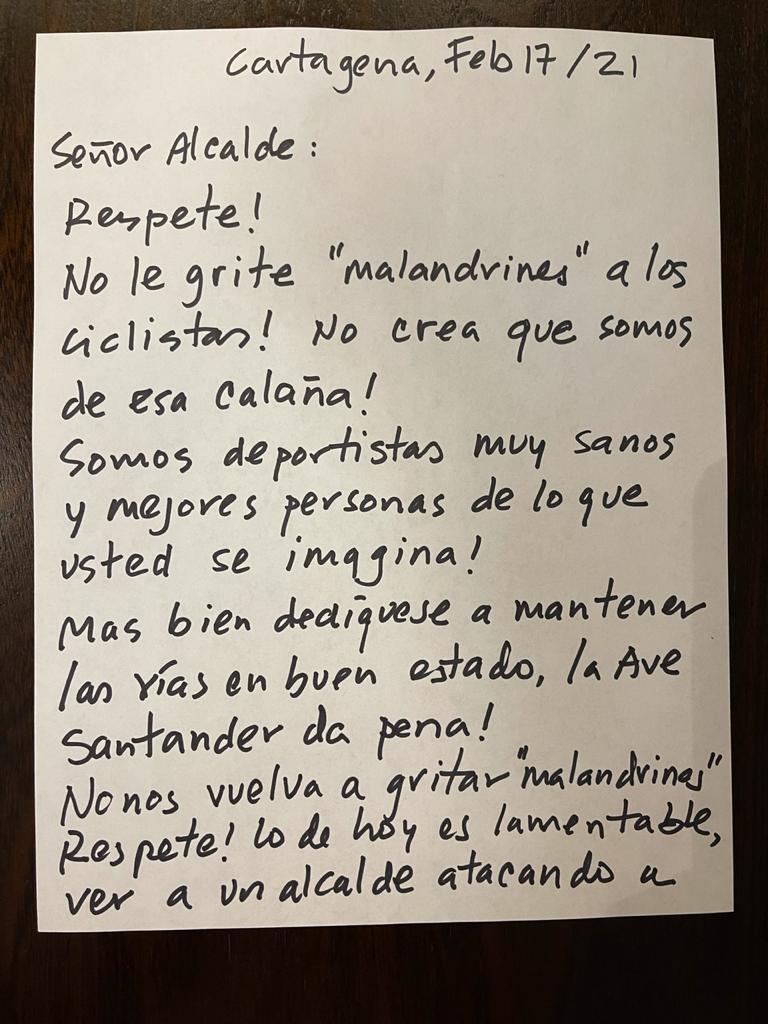 Cartagena, Feb 17/21
Señor Alcalde:
Respete!
No le grite "malandrines" a los
ciclistas! No crea que somos
de esa calaña!
Somos deportistas muy sanos
y mejores personas de lo que
usted se imagina!
Mas bien dedíquese a mantener
las vías en buen estado, la Ave
Santander da pena!
No nos vuelva a gritar "malandrines"
Respete! lo de hoy es lamentable,
ver a un alcalde atacando a